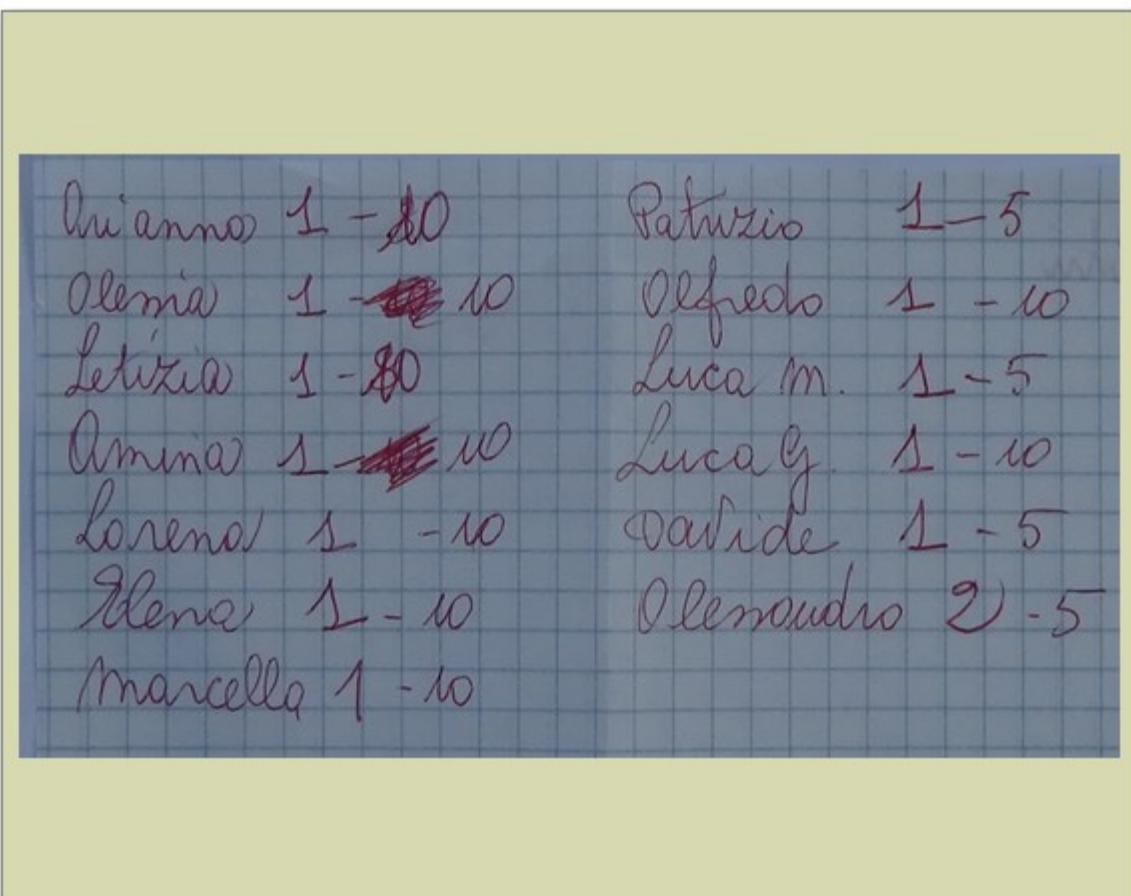 Arianna 1 - 10
Alessia 1 - 10
Letizia 1 - 10
Amina 1 - 10
Lorena 1 - 10
Elena 1 - 10
Marcella 1 - 10
Patrizio 1 - 5
Alfredo 1 - 10
Luca M. 1 - 5
Luca G. 1 - 10
Davide 1 - 5
Alessandro 2 - 5